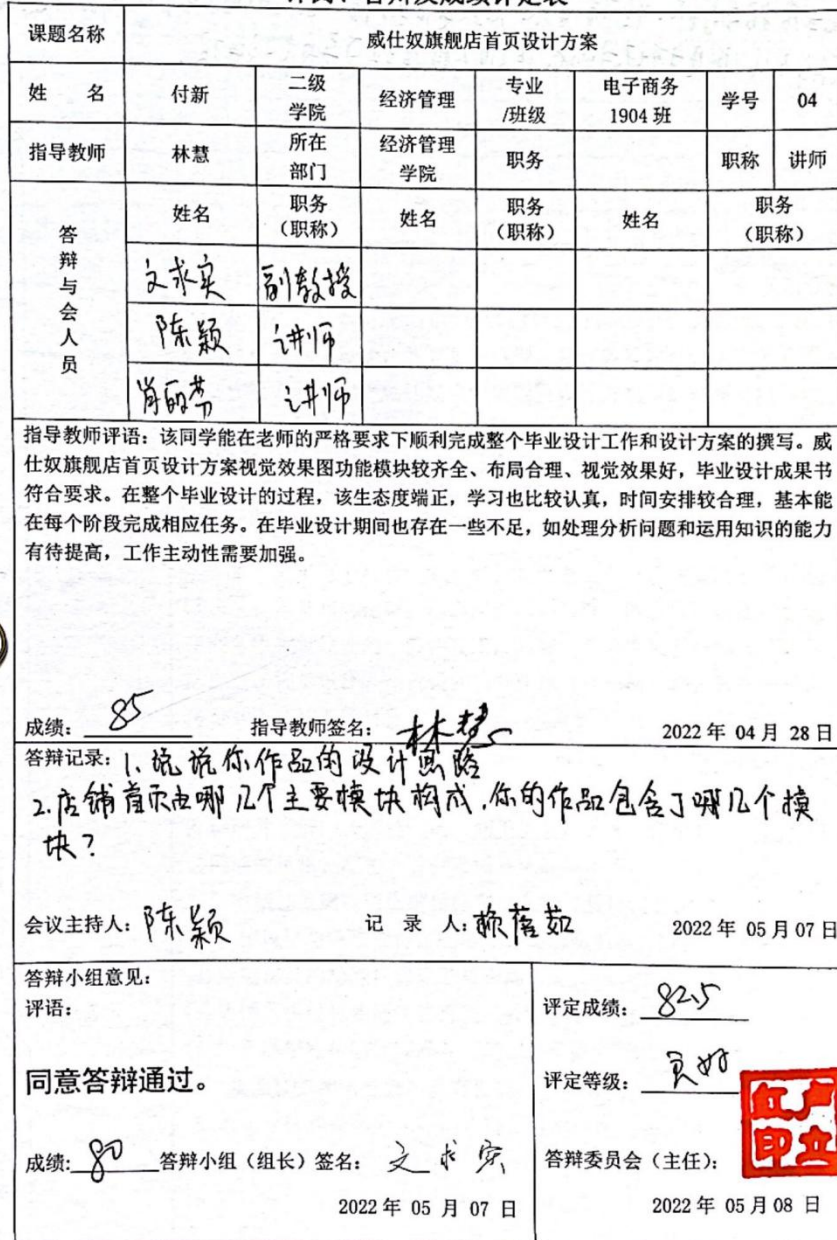 评阅、答辩及成绩评定表
课题名称 威仕奴旗舰店首页设计方案
姓 名 付新 二级学院 经济管理 专业/班级 电子商务1904班 学号 04
指导教师 林慧 所在部门 经济管理学院 职务 职称 讲师
答辩与会人员 姓名 职务（职称） 姓名 职务（职称） 姓名 职务（职称）
文求实 副教授
陈颖 讲师
肖丽芳 讲师
指导教师评语：该同学能在老师的严格要求下顺利完成整个毕业设计工作和设计方案的撰写。威
仕奴旗舰店首页设计方案视觉效果图功能模块较齐全、布局合理、视觉效果好，毕业设计成果书
符合要求。在整个毕业设计的过程，该生态度端正，学习也比较认真，时间安排较合理，基本能
在每个阶段完成相应任务。在毕业设计期间也存在一些不足，如处理分析问题和运用知识的能力
有待提高，工作主动性需要加强。
成绩：85 指导教师签名：林慧 2022年 04月 28日
答辩记录：1、说说你作品的设计思路
2.店铺首页由哪几个主要模块构成，你的作品包含了哪几个模
块？
会议主持人：陈颖 记 录 人： 2022年 05月 07日
答辩小组意见：
评语：
同意答辩通过。
成绩：80 答辩小组（组长）签名：文求实
2022年 05月 07日
评定成绩：82.5
评定等级：良好
答辩委员会（主任）：卢立红印
2022年 05月 08日